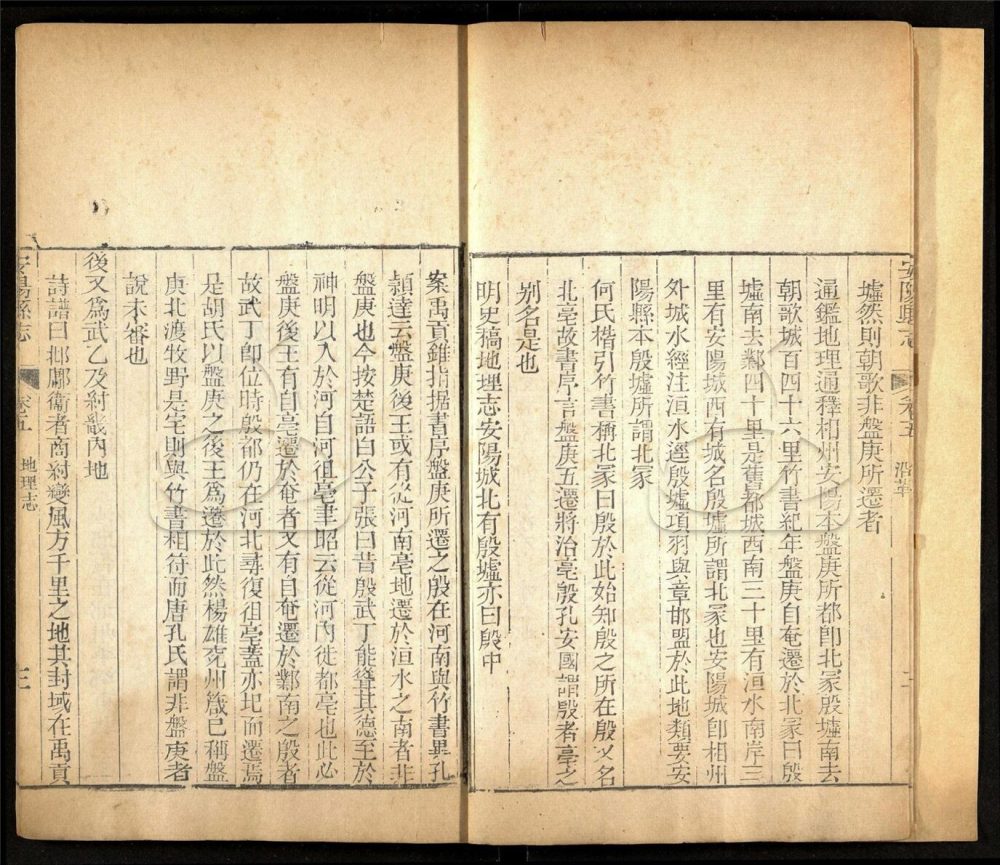 安陽縣志
卷五
沿革
二
墟然則朝歌非盤庚所遷者
通鑑地理通釋相州安陽本盤庚所都卽北冢殷墟南去
朝歌城百四十六里竹書紀年盤庚自奄遷於北冢曰殷
墟南去鄴四十里是舊都城西南三十里有洹水南岸三
里有安陽城西有城名殷墟所謂北冢也安陽城卽相州
外城水經注洹水逕殷墟項羽與章邯盟於此地類要安
陽縣本殷墟所謂北冢
何氏楷引竹書稱北冢曰殷於此始知殷之所在殷又名
北亳故書序言盤庚五遷將治亳殷孔安國謂殷者亳之
別名是也
明史稿地理志安陽城北有殷墟亦曰殷中
案禹貢錐指據書序盤庚所遷之殷在河南與竹書異孔
頴達云盤庚後王或有從河南亳地遷於洹水之南者非
盤庚也今按楚語白公子張曰昔殷武丁能聳其德至於
神明以入於河自河徂亳韋昭云從河內徙都亳也此必
盤庚後王有自亳遷於奄者又有自奄遷於鄴南之殷者
故武丁卽位時殷都仍在河北尋復徂亳蓋亦圮而遷焉
是胡氏以盤庚之後王爲遷於此然楊雄兗州箴已稱盤
庚北渡牧野是宅則與竹書相符而唐孔氏謂非盤庚者
說未審也
後又爲武乙及紂畿內地
詩譜曰邶鄘衞者商紂變風方千里之地其封域在禹貢
安陽縣志
卷五
地理志
三